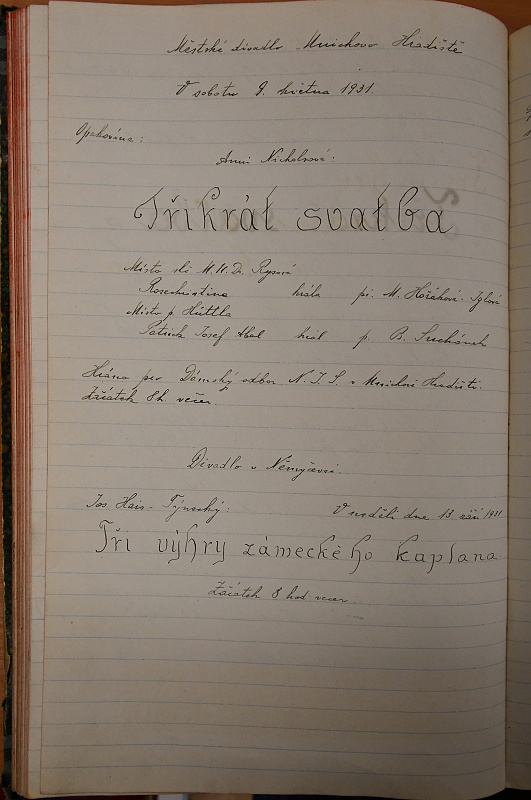 Městské divadlo Mnichovo Hradiště
V sobotu 9. května 1931.
Opakována:
Anni Nicholsová:
Třikrát svatba
Místo slč. M. U. Dr. Rysová
Rosechristine hrála pí. M. Hořáková-Iglová
Místo p. Hüttla
Patrick Josef Abal hrál p. B. Suchánek
Hráno pro Dámský odbor N. J. S. v Mnichově Hradišti.
Začátek 8 h. večer.
Divadlo v Němyčevsi.
Jos. Hais-Týnecký: V neděli dne 13. září 1931
Tři výhry zámeckého kaplana
Začátek 8 hod večer.